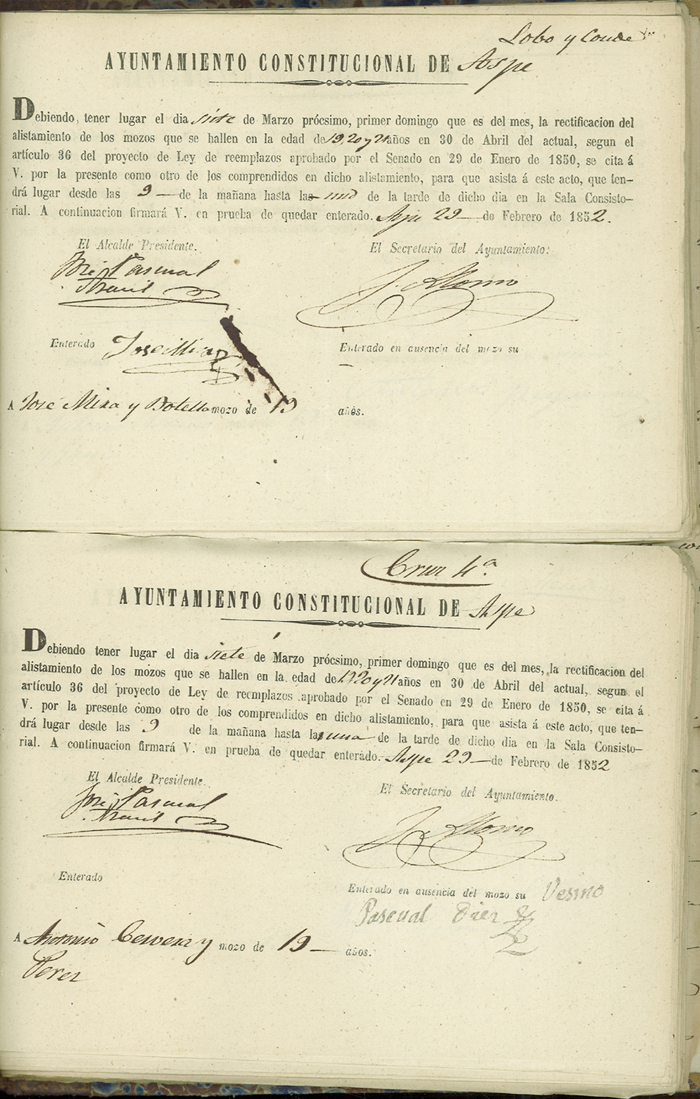 Lobo y Conde
AYUNTAMIENTO CONSTITUCIONAL DE Aspe
Debiendo tener lugar el dia siete de Marzo prócsimo, primer domingo que es del mes, la rectificacion del
alistamiento de los mozos que se hallen en la edad de 19, 20 y 21 años en 30 de Abril del actual, segun el
artículo 36 del proyecto de Ley de reemplazos aprobado por el Senado en 29 de Enero de 1850, se cita á
V. por la presente como otro de los comprendidos en dicho alistamiento, para que asista á este acto, que ten-
drá lugar desde las 9 de la mañana hasta la una de la tarde de dicho dia en la Sala Consisto-
rial. A continuacion firmará V. en prueba de quedar enterado. Aspe 29 de Febrero de 1852.
El Alcalde Presidente.
El Secretario del Ayuntamiento:
José Pascual
J. Alonso
Enterado José Mira
Enterado en ausencia del mozo su
A José Mira y Botella mozo de 19 años.
Cruz 4ª
AYUNTAMIENTO CONSTITUCIONAL DE Aspe
Debiendo tener lugar el dia siete de Marzo prócsimo, primer domingo que es del mes, la rectificacion del
alistamiento de los mozos que se hallen en la edad de 19 20 y 21 años en 30 de Abril del actual, segun el
artículo 36 del proyecto de Ley de reemplazos aprobado por el Senado en 29 de Enero de 1850, se cita á
V. por la presente como otro de los comprendidos en dicho alistamiento, para que asista á este acto, que ten-
drá lugar desde las 9 de la mañana hasta la una de la tarde de dicho dia en la Sala Consisto-
rial. A continuacion firmará V. en prueba de quedar enterado. Aspe 29 de Febrero de 1852
El Alcalde Presidente.
El Secretario del Ayuntamiento.
José Pascual
J. Alonso
Enterado
Enterado en ausencia del mozo su Vesino
Pascual Dies
A Antonio Cervera y mozo de 19 años.
Perez